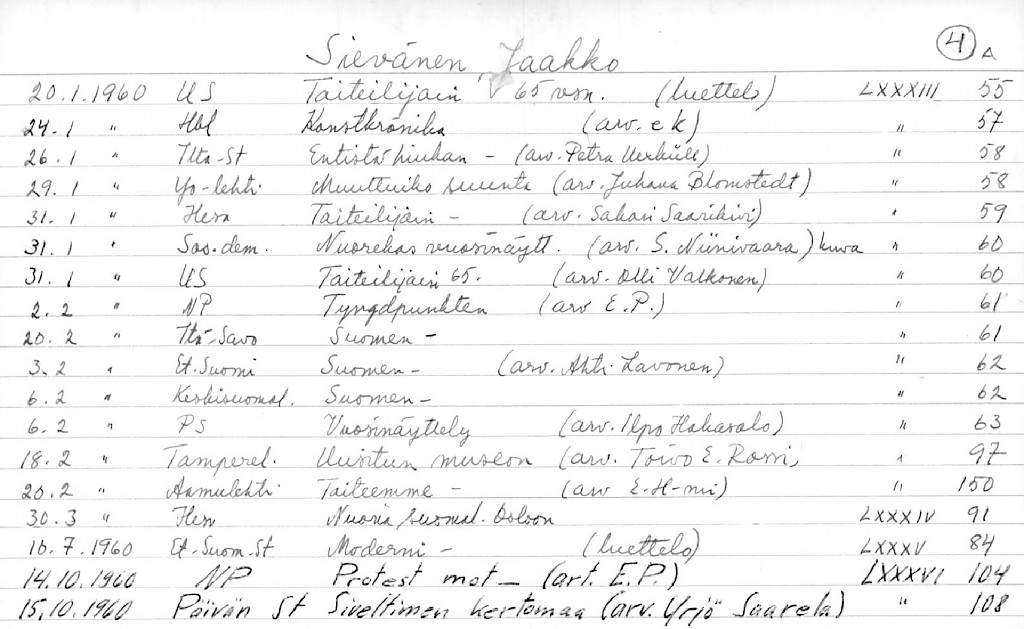 4 A
Sievänen, Jaakko
20.1.1960 US Taiteilijain 65 vsn. (luettelo) LXXXIII 55
24.1 " Hbl Konstkrönika (arv. e k) " 57
26.1 " Ilta-St Entistä hiukan - (arv. Petra Uexküll) " 58
29.1 " Yo-lehti Muuttuiko suunta (arv. Juhana Blomstedt) " 58
31.1 " Hesa Taiteilijain - (arv. Sakari Saarikivi) " 59
31.1 " Sos.dem. Nuorekas vuosinäytt. (arv. S. Niinivaara) kuva " 60
31.1 " US Taiteilijain 65. (arv. Olli Valkonen) " 60
2.2 " NP Tyngdpunkten (arv E.P.) " 61
20.2 " Itä-Savo Suomen - " 61
3.2 " Et.Suomi Suomen - (arv. Ahti Lavonen) " 62
6.2 " Keskisuomal. Suomen - " 62
6.2 " PS Vuosinäyttely (arv. Ilpo Hakasalo) " 63
18.2 " Tamperel. Uusitun museon (arv. Toivo E. Rossi, " 97
20.2 " Aamulehti Taiteemme - (arv E. H-mi) " 150
30.3 " Hesa Nuoria suomal. Osloon LXXXIV 91
16.7.1960 Et.Suom.St Moderni - (luettelo) LXXXV 84
14.10.1960 NP Protest mot - (art. E.P.) LXXXVI 104
15.10.1960 Päivän St Siveltimen kertomaa (arv. Yrjö Saarela) " 108